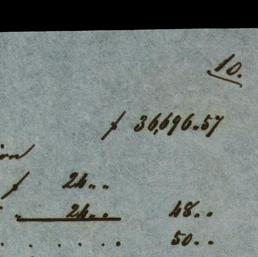 10.
ƒ 36,696.57
ion
ƒ 24..
" 24.. 48..
. . . . . 50..